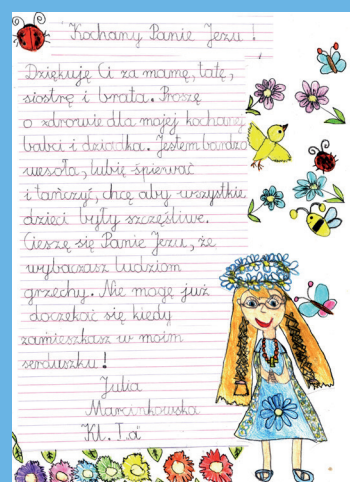 Kochany Panie Jezu!
Dziękuję Ci za mamę, tatę,
siostrę i brata. Proszę
o zdrowie dla mojej kochanej
babci i dziadka. Jestem bardzo
wesoła, lubię śpiewać
i tańczyć, chcę aby wszystkie
dzieci były szczęśliwe.
Cieszę się Panie Jezu, że
wybaczasz ludziom
grzechy. Nie mogę już
doczekać się kiedy
zamieszkasz w moim
serduszku!
Julia
Marcinkowska
Kl. I "a"